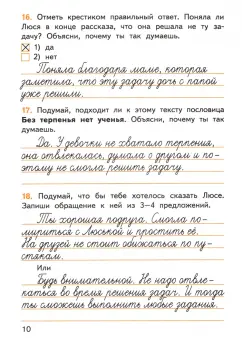 16. Отметь крестиком правильный ответ. Поняла ли
Люся в конце рассказа, что она решала не ту за-
дачу? Объясни, почему ты так думаешь.
1) да
2) нет
Поняла благодаря маме, которая
заметила, что эту задачу дочь с папой
уже решили.
17. Подумай, подходит ли к этому тексту пословица
Без терпенья нет ученья. Объясни, почему ты так
думаешь.
Да. У девочки не хватало терпения,
она отвлекалась, думала о другом и по-
этому не смогла решить задачу.
18. Подумай, что бы тебе хотелось сказать Люсе.
Запиши обращение к ней из 3–4 предложений.
Ты хорошая подруга. Смогла по-
мириться с Люськой и простить её.
На друзей не стоит обижаться по пу-
стякам.
Или
Будь внимательной. Не надо отвле-
каться во время решения задач. И тогда
ты сможешь выполнить любые задания.
10